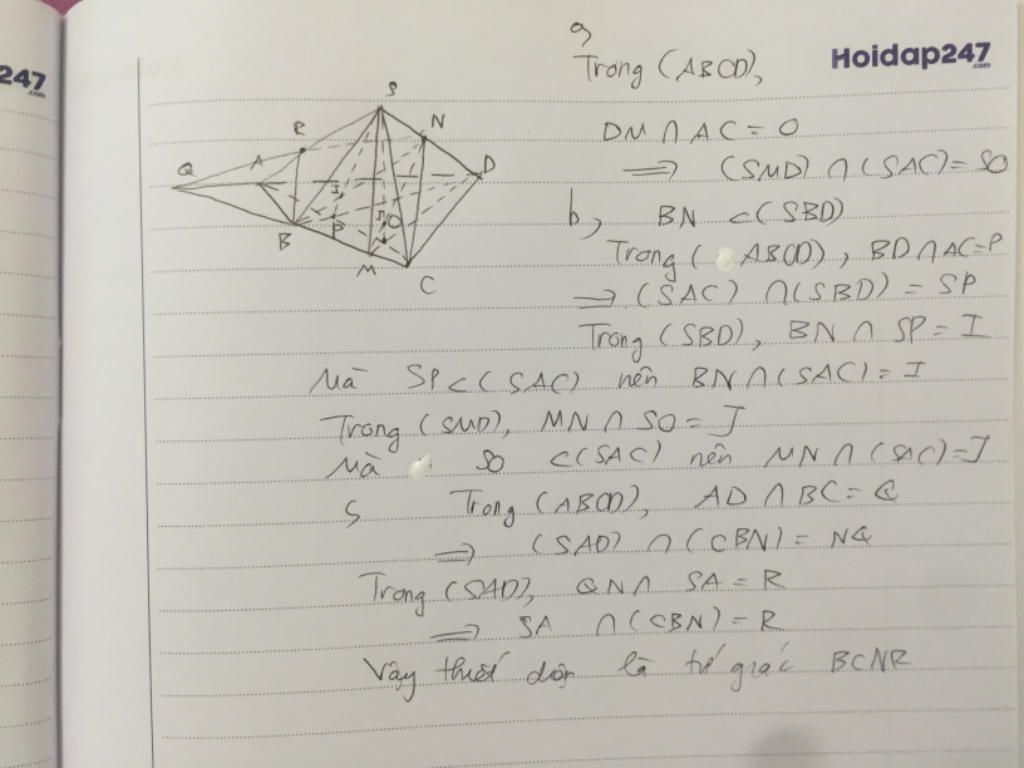 247
.com
Hoidap247
.com
a,
Trong (ABCD),
DM ∩ AC = O
⟹ (SMD) ∩ (SAC) = SO
b, BN ⊂ (SBD)
Trong ( ABCD), BD ∩ AC = P
⟹ (SAC) ∩ (SBD) = SP
Trong (SBD), BN ∩ SP = I
Mà SP ⊂ (SAC) nên BN ∩ (SAC) = I
Trong (SMD), MN ∩ SO = J
Mà SO ⊂ (SAC) nên MN ∩ (SAC) = J
c, Trong (ABCD), AD ∩ BC = Q
⟹ (SAD) ∩ (CBN) = NQ
Trong (SAD), QN ∩ SA = R
⟹ SA ∩ (CBN) = R
Vậy thiết diện là tứ giác BCNR
S
R
N
Q
A
D
I
J
O
P
B
M
C